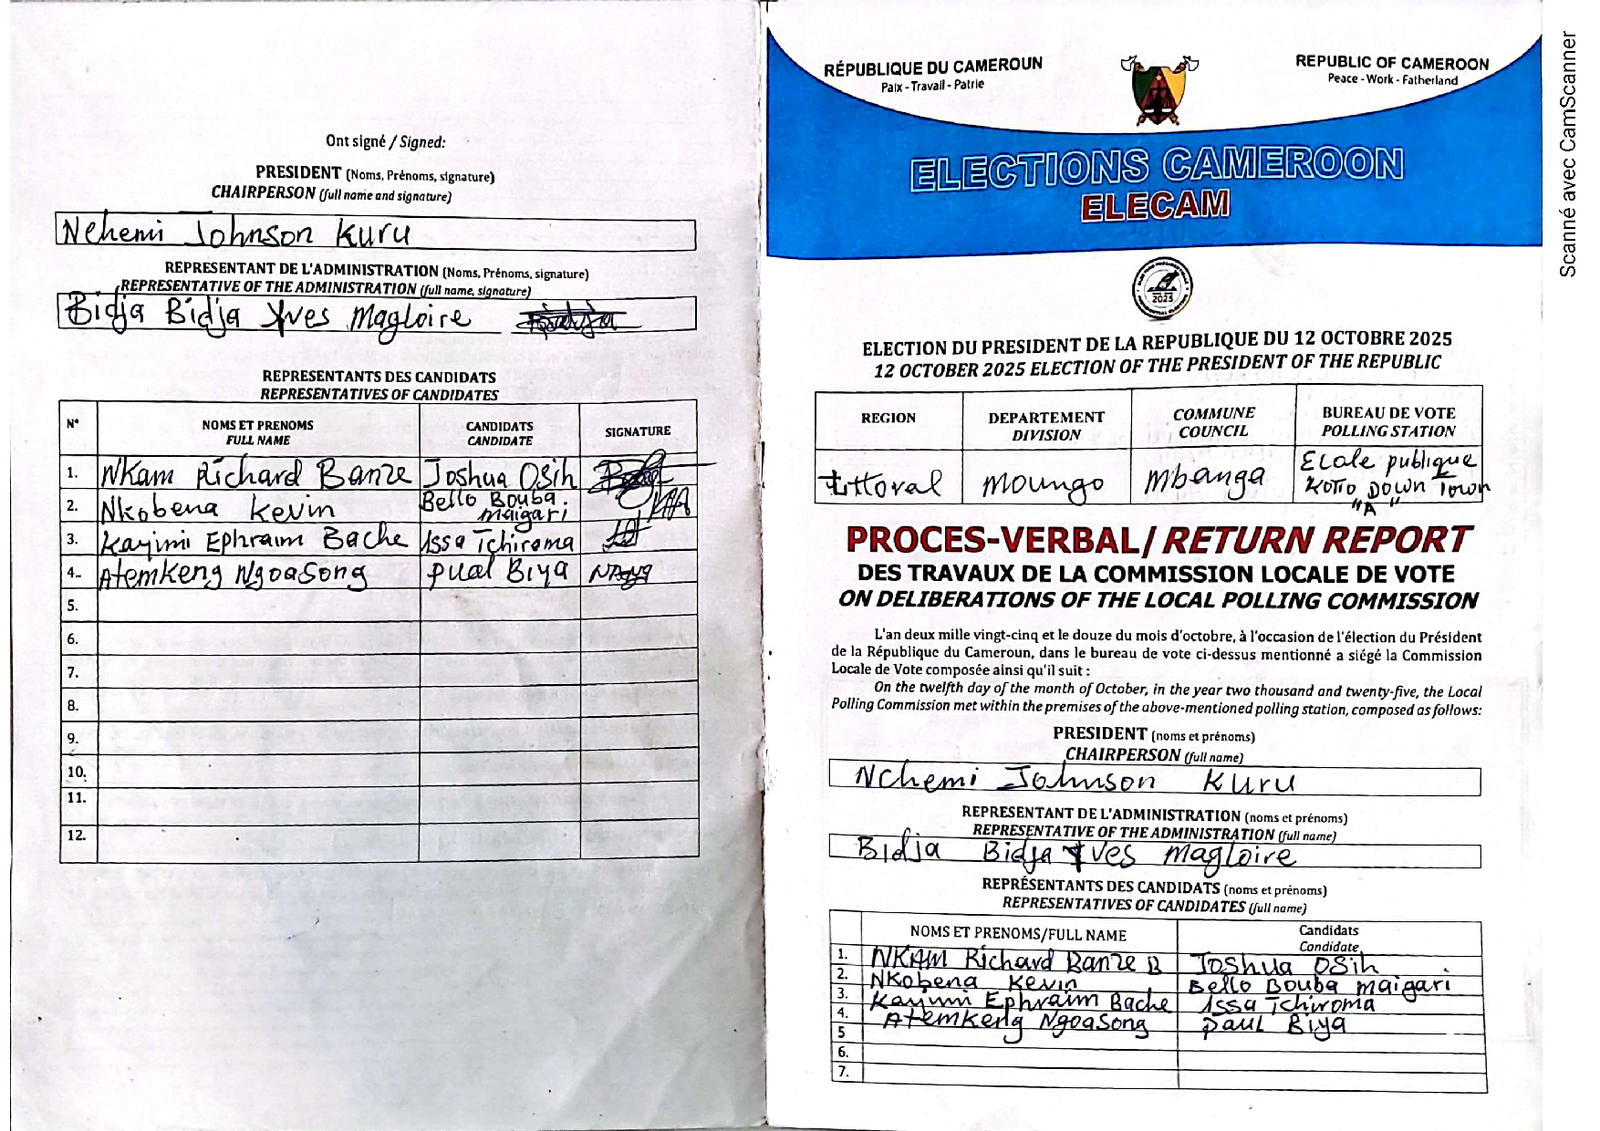 Ont signé / Signed:
PRESIDENT (Noms, Prénoms, signature)
CHAIRPERSON (full name and signature)
Nchemi Johnson Kuru
REPRESENTANT DE L'ADMINISTRATION (Noms, Prénoms, signature)
REPRESENTATIVE OF THE ADMINISTRATION (full name, signature)
Bidja Bidja Yves Magloire
REPRESENTANTS DES CANDIDATS
REPRESENTATIVES OF CANDIDATES
N° NOMS ET PRENOMS FULL NAME CANDIDATS CANDIDATE SIGNATURE
1. NKam Richard Banze Joshua Osih
2. Nkobena Kevin Bello Bouba Maigari
3. Kayimi Ephraim Bache Issa Tchiroma
4. Atemkeng Ngoasong pual Biya
5.
6.
7.
8.
9.
10.
11.
12.
RÉPUBLIQUE DU CAMEROUN
Paix - Travail - Patrie
REPUBLIC OF CAMEROON
Peace - Work - Fatherland
ELECTIONS CAMEROON
ELECAM
2025
ELECTION DU PRESIDENT DE LA REPUBLIQUE DU 12 OCTOBRE 2025
12 OCTOBER 2025 ELECTION OF THE PRESIDENT OF THE REPUBLIC
REGION DEPARTEMENT DIVISION COMMUNE COUNCIL BUREAU DE VOTE POLLING STATION
Littoral Moungo Mbanga Ecole publique Kotto Down Town "A"
PROCES-VERBAL / RETURN REPORT
DES TRAVAUX DE LA COMMISSION LOCALE DE VOTE
ON DELIBERATIONS OF THE LOCAL POLLING COMMISSION
L'an deux mille vingt-cinq et le douze du mois d'octobre, à l'occasion de l'élection du Président
de la République du Cameroun, dans le bureau de vote ci-dessus mentionné a siégé la Commission
Locale de Vote composée ainsi qu'il suit :
On the twelfth day of the month of October, in the year two thousand and twenty-five, the Local
Polling Commission met within the premises of the above-mentioned polling station, composed as follows:
PRESIDENT (noms et prénoms)
CHAIRPERSON (full name)
Nchemi Johnson Kuru
REPRESENTANT DE L'ADMINISTRATION (noms et prénoms)
REPRESENTATIVE OF THE ADMINISTRATION (full name)
Bidja Bidja Yves Magloire
REPRÉSENTANTS DES CANDIDATS (noms et prénoms)
REPRESENTATIVES OF CANDIDATES (full name)
NOMS ET PRENOMS/FULL NAME Candidats Candidate
1. NKAM Richard Banze B Joshua Osih
2. NKobena Kevin Bello Bouba Maigari
3. Kayimi Ephraim Bache Issa Tchiroma
4. Atemkeng Ngoasong paul Biya
5
6.
7.
Scanné avec CamScanner